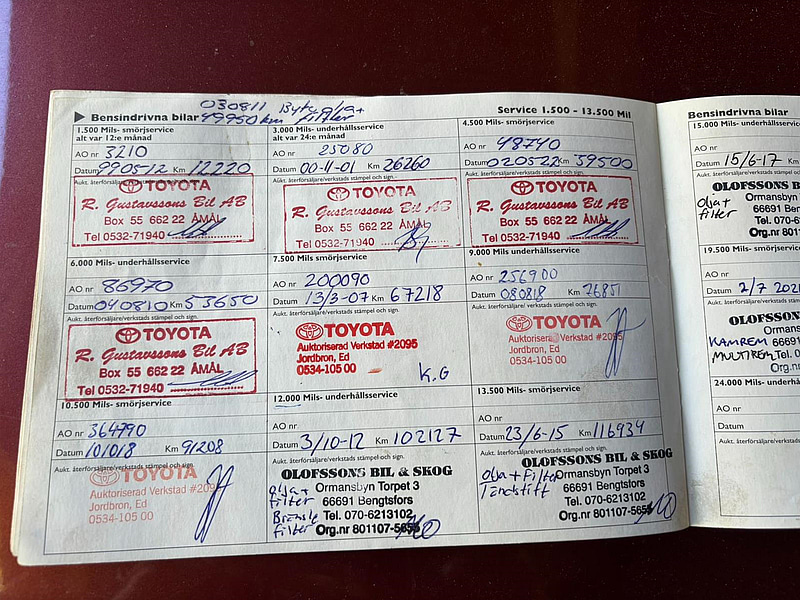 030811 Byte olja+
▶ Bensindrivna bilar 49950 km filter
Service 1.500 - 13.500 Mil
1.500 Mils- smörjservice
alt var 12:e månad
AO nr 3210
Datum 990512 Km 12220
Aukt. återförsäljare/verkstads stämpel och sign.
TOYOTA
R. Gustavssons Bil AB
Box 55 662 22 ÅMÅL
Tel 0532-71940
3.000 Mils- underhållsservice
alt var 24:e månad
AO nr 25080
Datum 00-11-01 Km 26260
Aukt. återförsäljare/verkstads stämpel och sign.
TOYOTA
R. Gustavssons Bil AB
Box 55 662 22 ÅMÅL
Tel 0532-71940
4.500 Mils- smörjservice
AO nr 48740
Datum 020522 Km 39500
Aukt. återförsäljare/verkstads stämpel och sign.
TOYOTA
R. Gustavssons Bil AB
Box 55 662 22 ÅMÅL
Tel 0532-71940
6.000 Mils- underhållsservice
AO nr 86970
Datum 040810 Km 53650
Aukt. återförsäljare/verkstads stämpel och sign.
TOYOTA
R. Gustavssons Bil AB
Box 55 662 22 ÅMÅL
Tel 0532-71940
7.500 Mils- smörjservice
AO nr 200090
Datum 13/3-07 Km 67218
Aukt. återförsäljare/verkstads stämpel och sign.
TOYOTA
Auktoriserad Verkstad #2095
Jordbron, Ed
0534-105 00
K.G
9.000 Mils- underhållsservice
AO nr 256900
Datum 080818 Km 76851
Aukt. återförsäljare/verkstads stämpel och sign.
TOYOTA
Auktoriserad Verkstad #2095
Jordbron, Ed
0534-105 00
10.500 Mils- smörjservice
AO nr 364790
Datum 101018 Km 91208
Aukt. återförsäljare/verkstads stämpel och sign.
TOYOTA
Auktoriserad Verkstad #2095
Jordbron, Ed
0534-105 00
12.000 Mils- underhållsservice
AO nr
Datum 3/10-12 Km 102127
Aukt. återförsäljare/verkstads stämpel och sign.
OLOFSSONS BIL & SKOG
Olja+ Ormansbyn Torpet 3
filter 66691 Bengtsfors
Bränsle Tel. 070-6213102
filter Org.nr 801107-5655
13.500 Mils- smörjservice
AO nr
Datum 23/6-15 Km 116934
Aukt. återförsäljare/verkstads stämpel och sign.
OLOFSSONS BIL & SKOG
Olja+Filter Ormansbyn Torpet 3
Tändstift 66691 Bengtsfors
Tel. 070-6213102
Org.nr 801107-5655
Bensindrivna bilar
15.000 Mils- underhållsservice
AO nr
Datum 15/6-17 Km
Aukt. återförsäljare/verkstads
OLOFSSONS
Olja+ Ormansbyn
filter 66691 B
Tel. 070-6
Org.nr 80
19.500 Mils- smörjservice
AO nr
Datum 2/7 2021
Aukt. återförsäljare/verkstads
OLOFSSON
Ormansb
KAMREM 66691
MULTIREM Tel. 0
Org.n
24.000 Mils-
AO nr
Datum
Aukt. återförsäljare/verkstads